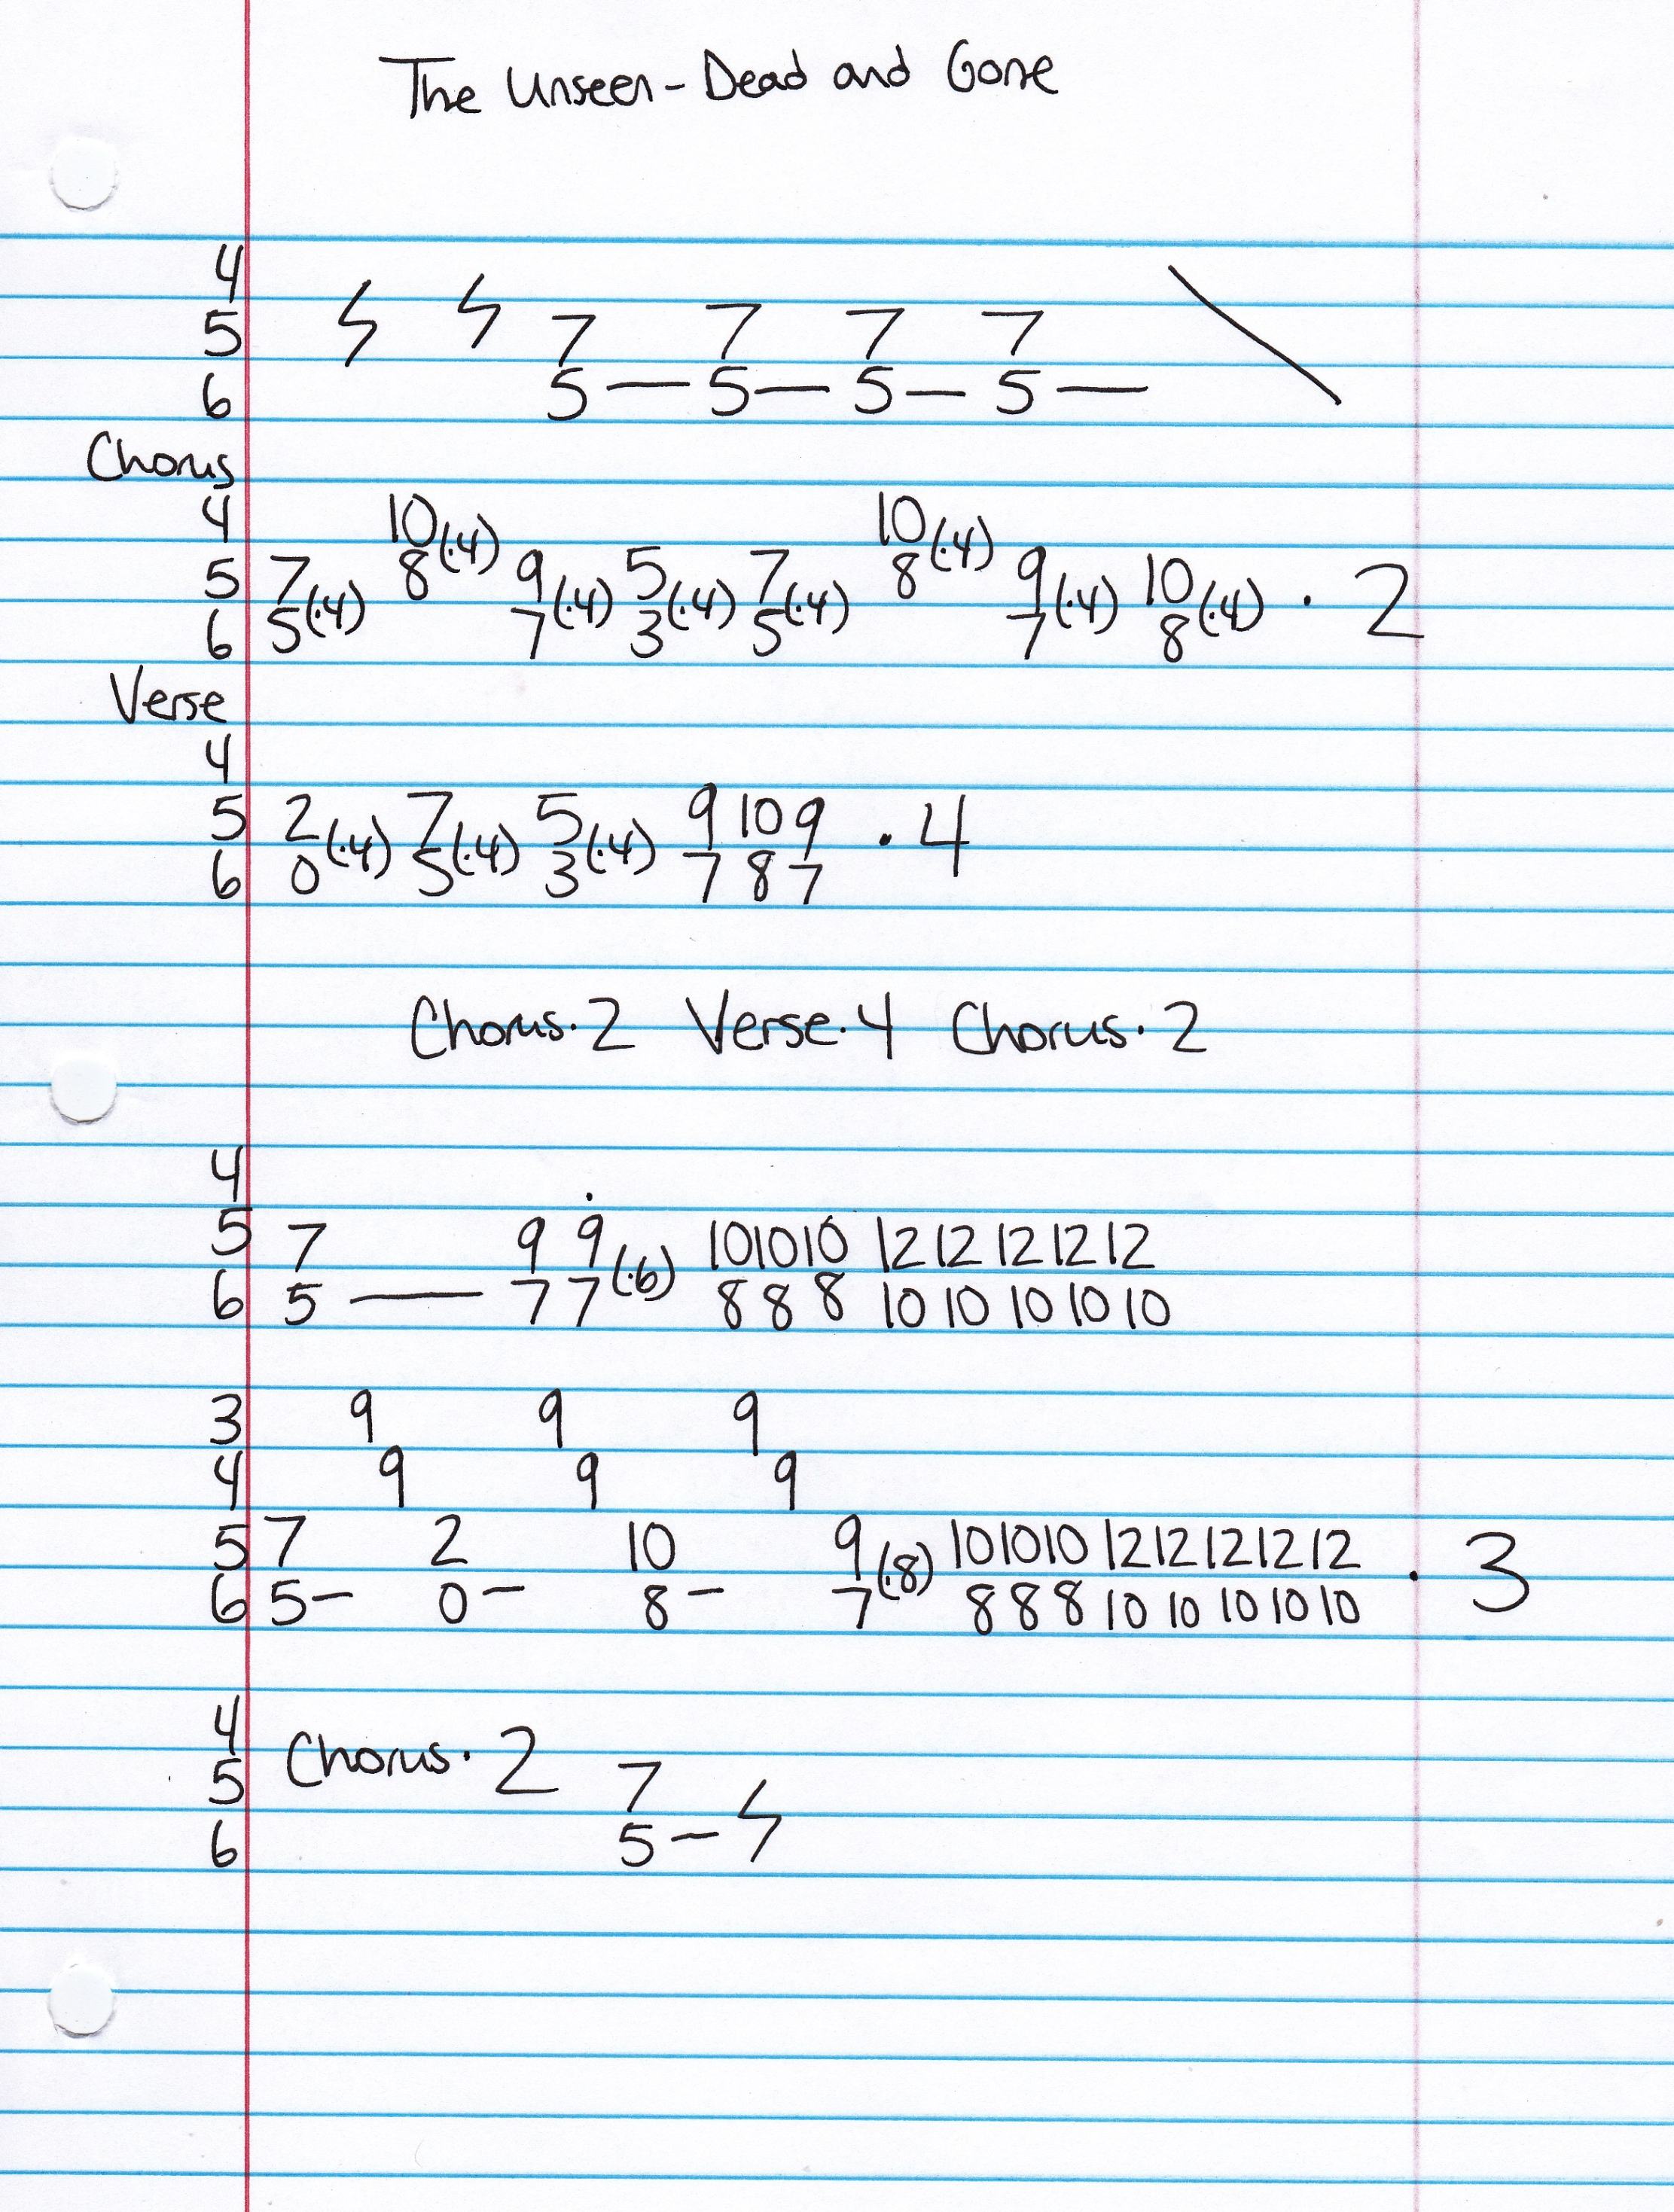 The Unseen - Dead and Gone
4
5 7 7 7 7
6 5 — 5 — 5 — 5 —
Chorus
4 10(·4) 10(·4)
5 7 8 9 5 7 8 9 10
6 5(·4) 7(·4) 3(·4) 5(·4) 7(·4) 8(·4) · 2
Verse
4
5 2 7 5 9 10 9
6 0(·4) 5(·4) 3(·4) 7 8 7 · 4
Chorus·2 Verse·4 Chorus·2
4
5 7 9 9 10 10 10 12 12 12 12 12
6 5 — 7 7(·6) 8 8 8 10 10 10 10 10
3 9 9 9
4 9 9 9
5 7 2 10 9 10 10 10 12 12 12 12 12
6 5 – 0 – 8 – 7(·8) 8 8 8 10 10 10 10 10 · 3
4 Chorus · 2
5 7
6 5 –